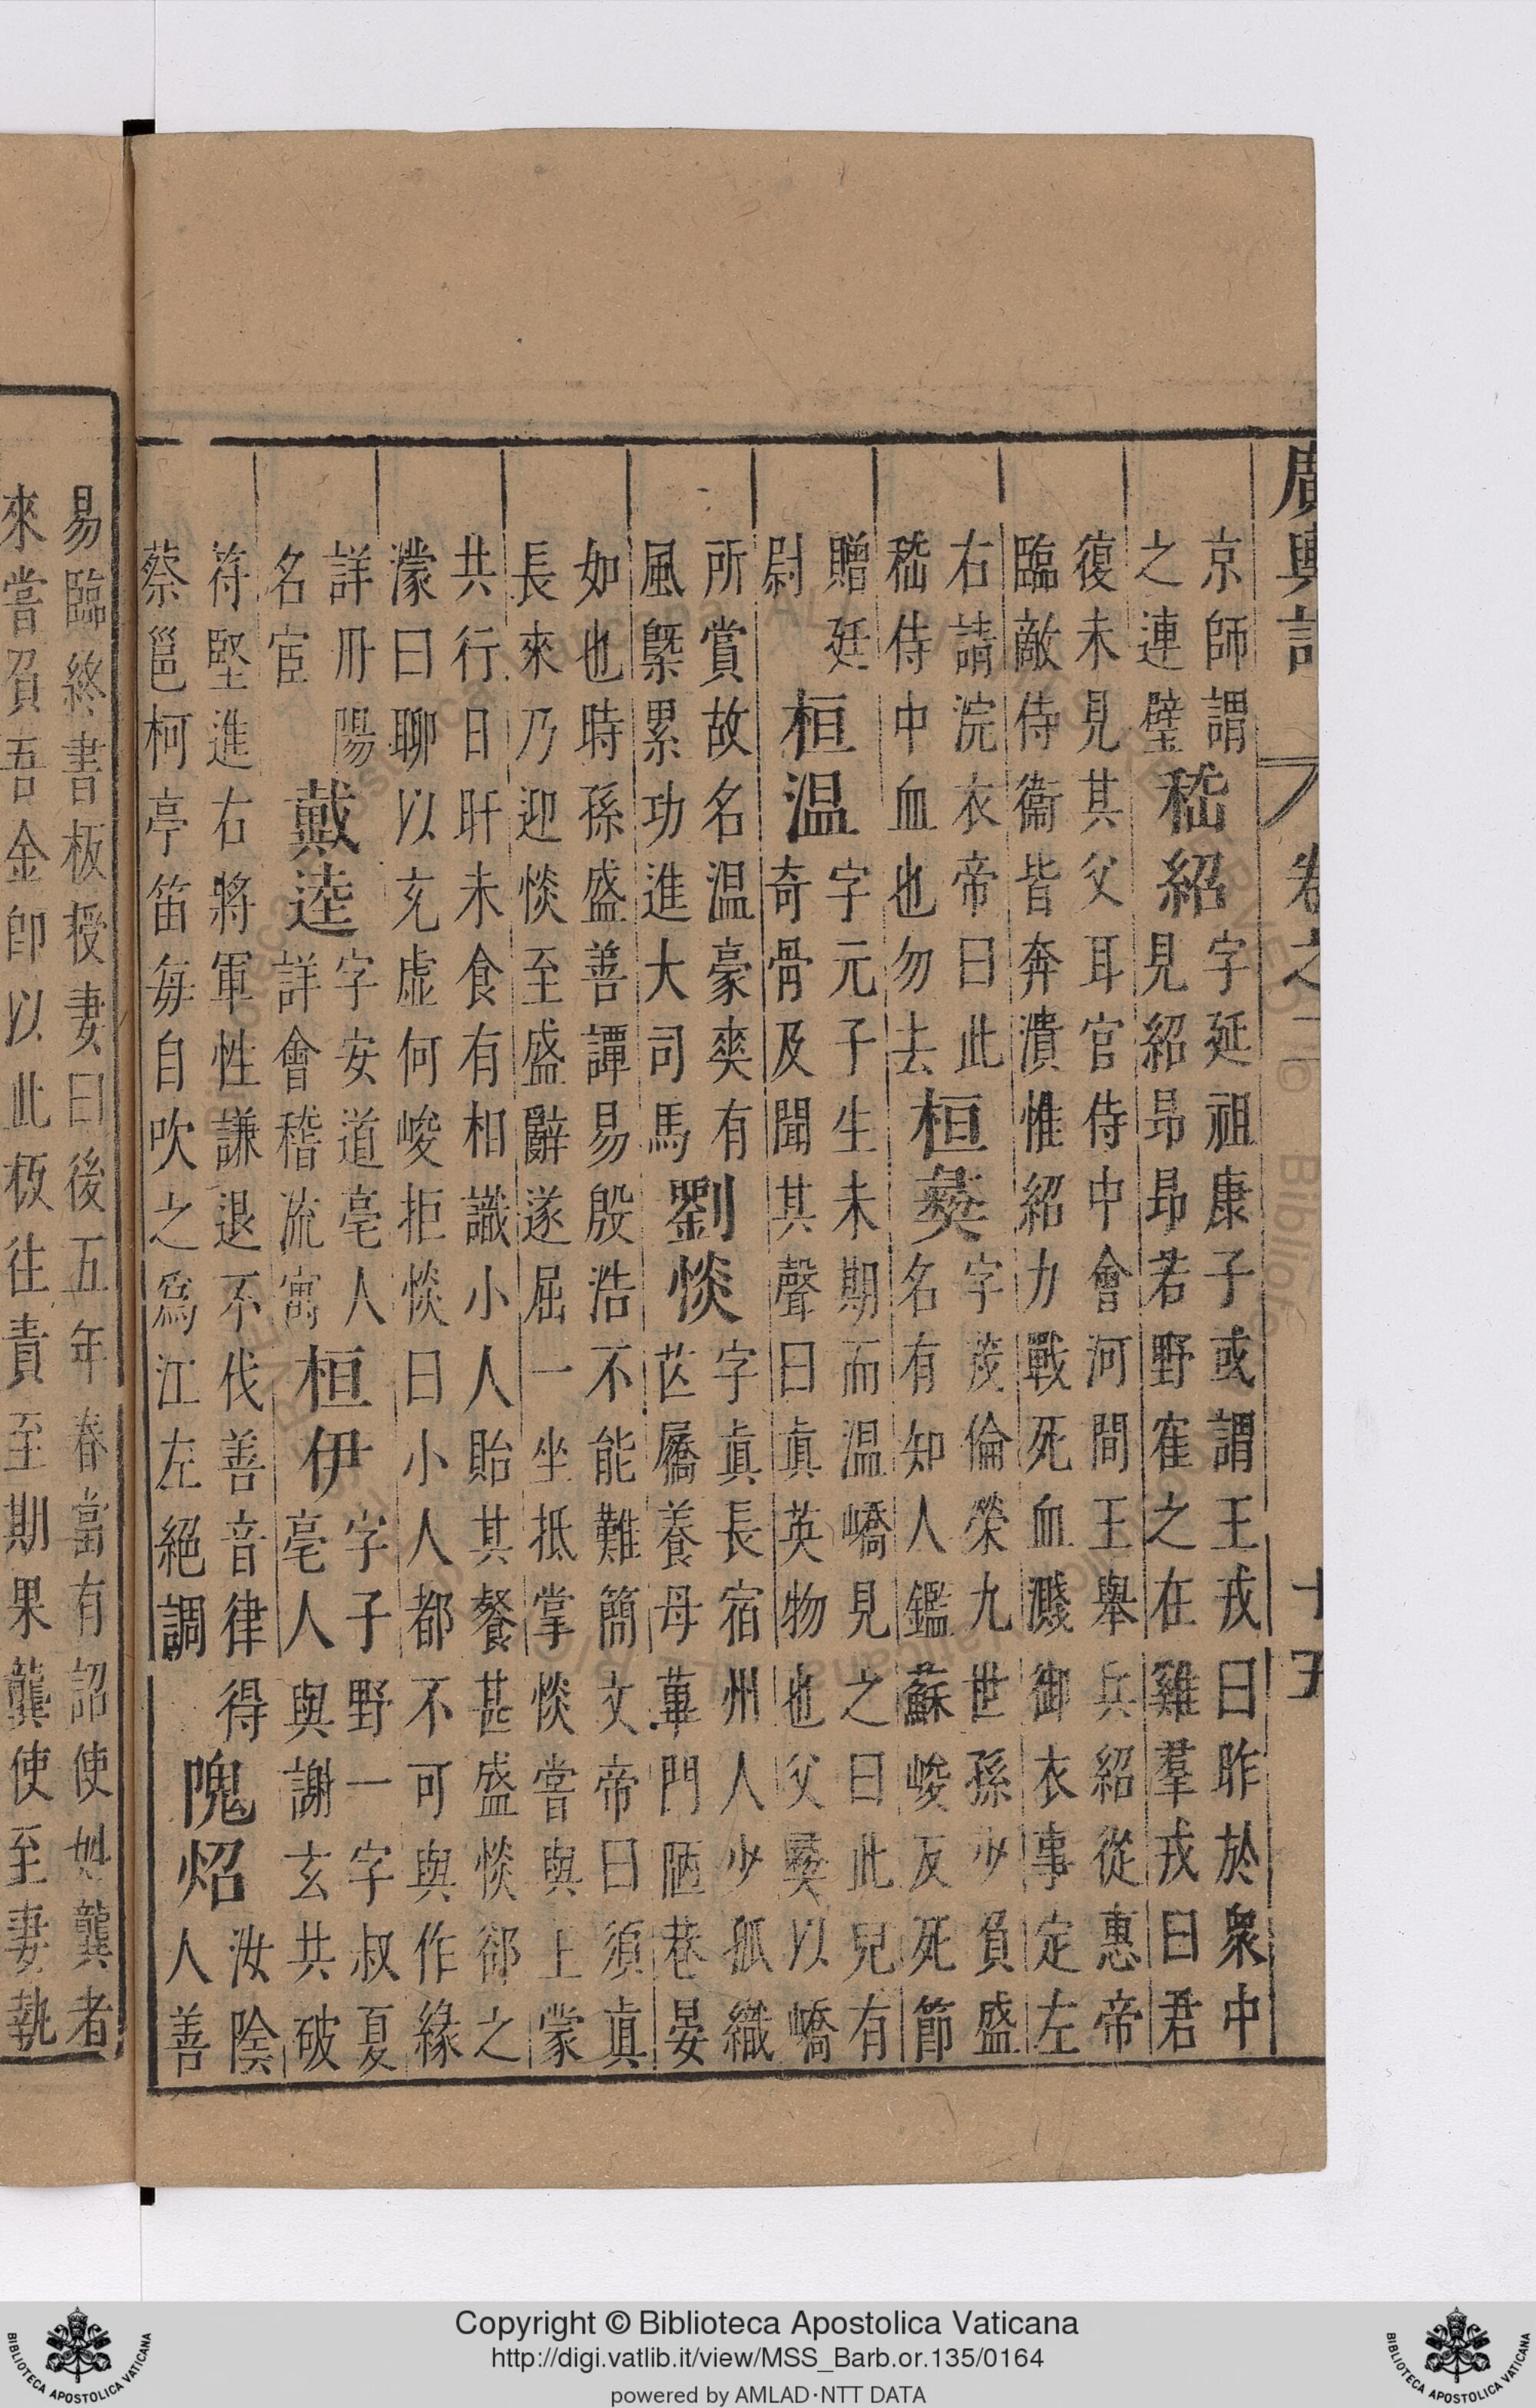 廣輿記 卷之二 十五
京師謂
之連璧
嵇紹
字延祖康子或謂王戎曰昨於衆中
見紹昂昂若野隺之在雞羣戎曰君
復未見其父耳官侍中會河間王舉兵紹從惠帝
臨敵侍衛皆奔潰惟紹力戰死血濺御衣事定左
右請浣衣帝曰此
嵇侍中血也勿去
桓彝
字茂倫榮九世孫少負盛
名有知人鑑蘇峻反死節
贈廷
尉
桓温
字元子生未期而温嶠見之曰此兒有
奇骨及聞其聲曰眞英物也父彝以嶠
所賞故名温豪爽有
風槩累功進大司馬
劉惔
字眞長宿州人少孤織
芒屩養母蓽門陋巷晏
如也時孫盛善譚易殷浩不能難簡文帝曰須眞
長來乃迎惔至盛辭遂屈一坐抵掌惔嘗與上蒙
共行日旰未食有相識小人貽其餐甚盛惔郤之
濛曰聊以充虛何峻拒惔曰小人都不可與作緣
詳丹陽
名宦
戴逵
字安道亳人
詳會稽流寓
桓伊
字子野一字叔夏
亳人與謝玄共破
符堅進右將軍性謙退不伐善音律得
蔡邕柯亭笛每自吹之爲江左絕調
隗炤
汝陰
人善
易臨終書板授妻曰後五年春當有詔使姓龔者
來嘗負吾金卽以此板往責至期果龔使至妻執
Copyright © Biblioteca Apostolica Vaticana
http://digi.vatlib.it/view/MSS_Barb.or.135/0164
powered by AMLAD·NTT DATA
BIBLIOTECA APOSTOLICA VATICANA
BIBLIOTECA APOSTOLICA VATICANA